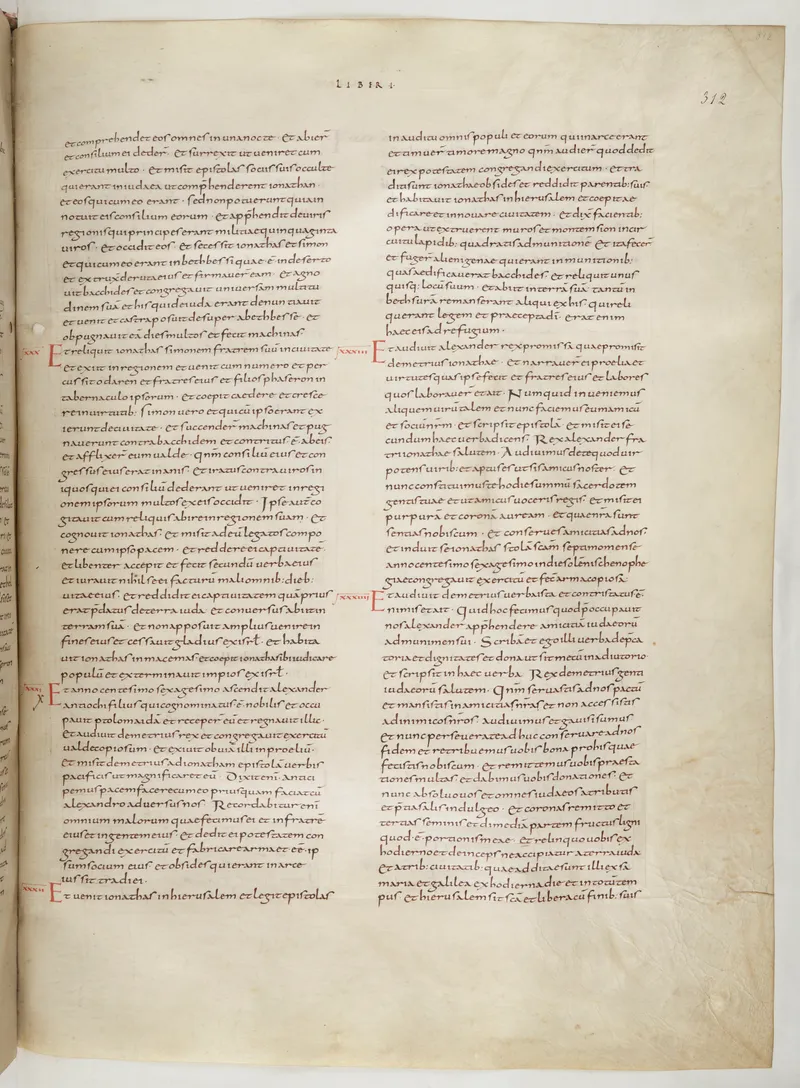 LIBRI
312
et comprehendet eos omnes in una nocte · Et abier̄
et consilium ei deder̄ · Et surrexit ut ueniret cum
exercitu multo · Et misit epistolas sociis suis occulte
qui erant in iudaea ut comp̄henderent ionathan ·
et eos qui cum eo erant · sed non potuerunt quia in
notuit eis consilium eorum · Et app̄hendit de uiris
regionis qui principes erant militiae quinquaginta
uiros · Et occidit eos · Et secessit ionathas et simon
et qui cum eo erant in bethbessi quae ē in deserto
et extruxit diruta eius et firmauer̄ eam · Et agno
uit bacchides et congregauit uniuersam multitu
dinem suā et his qui de iuda erant denuntiauit
et uenit et castra posuit desuper abethbesse · et
obpugnauit eā dies multos et fecit machinas
XXX Et reliquit ionathas simonem fratrem suū in ciuitate
et exiit in regionem et uenit cum numero et per
cussit odaren et fratres eius et filios phaseron in
tabernaculo ipsorum · et coepit caedere et cresce
re in uirtutib: simon uero et qui cū ipso erant ex
ierunt de ciuitate · Et succender̄ machinas et pug
nauerunt contra bacchidem et contritus ē ab eis
et afflixer̄ eum ualde · qn̄m consiliū eius et con
gressus eius erat inanis · Et iratus contra uiros in
iquos qui ei consiliū dederant ut ueniret in regi
onem ipsorum multos ex eis occidit · Ipse aut̄ co
gitauit cum reliquis abire in regionem suam · Et
cognouit ionathas · et misit ad eū legatos compo
nere cum ipso pacem · et reddere ei captiuitatē
et libenter accepit et fecit secundū uerba eius
et iurauit nihil se ei facturū mali omnib: dieb:
uitae eius · et reddidit ei captiuitatem quā prius
erat p̄datus de terra iuda · et conuersus abiit in
terram suā · et non apposuit amplius uenire in
fines eius et cessauit gladius ex isrł · et habita
uit ionathas in macemas et coepit ionathas ibi iudicare
populū et exterminauit impios ex isrł ·
XXXI Et anno centesimo sexagesimo ascendit alexander
antiochi filius qui cognominatus ē nobilis et occu
pauit ptolomaidā et receper̄ eū et regnauit illic ·
X
Et audiit demetrius rex et congregauit exercitū
ualde copiosum · et exiuit obuiā illi in proeliū ·
et misit demetrius ad ionatham epistolā uerbis
pacificis ut magnificaret eū · Dixit enī antici
pemus pacem facere cum eo priusquam faciat cū
alexandro aduersus nos · Recordabitur enī
omnium malorum quae fecimus ei et in fratrē
eius et in gentem eius · et dedit ei potestatem con
gregandi exercitū et fabricare arma et eē ip
sum socium eius et obsides qui erant in arce
iussit tradi ei ·
XXXII Et uenit ionathas in hierusalem et legit epistolas
in auditu omnis populi et eorum qui in arce erant
et timuer̄ timore magno qn̄m audier̄ quod dedit
ei rex potestatem congregandi exercitum · et tra
diti sunt ionathae obsides et reddidit parentib: suis
et habitauit ionathas in hierusalem et coepit ae
dificare et innouare ciuitatem · et dix̄ facientib:
opera ut extruerent muros et montem sion in cir
cuitu lapidib: quadratis ad munitionē · Et ita fecer̄
et fuger̄ alienigenae qui erant in munitionib:
quas aedificauerat bacchides · et reliquit unus
quisq: locū suum · et abiit in terrā suā tantū in
bethsura remanserant aliqui ex his · qui reli
querant legem et praecepta dī · erat enim
haec eis ad refugium ·
XXXIII Et audiuit alexander rex promissa quae promisit
demetrius ionathae · et narrauer̄ ei proelia et
uirtutes quas ipse fecit et fratres eius et labores
quos laborauer̄ et ait · Numquid inueniemus
aliquem uirū talem et nunc faciemus eum amicū
et sociū nr̄m · et scripsit epistolā · et misit ei se
cundum haec uerba dicens · Rex alexander fra
tri ionathae salutem · Audiuimus de te quod uir
potens uirib: et aptus es ut sis amicus noster · et
nunc constituimus te hodie summū sacerdotem
gentis tuae et ut amicus uoceris regis · et misit ei
purpurā et coronā auream · et quae nr̄a sunt
sentias nobiscum · et conserues amicitias ad nos ·
et induit se ionathas stola sc̄am septimo mense
anno centesimo sexagesimo in die sollēni scenophe
giae et congregauit exercitū et fec̄ arma copiosa
XXXIIII Et audiuit demetrius uerba ista et contristatus ē
nimis et ait · Quid hoc fecimus quod p̄occupauit
nos alexander app̄hendere amicitiā iudaeorū
ad munimen sui · Scribā et ego illi uerba dep̄ca
toria et dignitates et dona ut sit mecū in adiutorio ·
et scripsit in haec uerba · Rex demetrius genti
iudaeorū salutem · Qn̄m seruastis ad nos pactū
et mansistis in amicitia nr̄a et non accessistis
ad inimicos nr̄os · audiuimus et gauisi sumus
et nunc perseuerate adhuc conseruare ad nos
fidem et retribuemus uobis bona pro his quae
fecistis nobiscum · et remittemus uobis praesta
tiones multas et dabimus uobis donationes · et
nunc absoluo uos et omnes iudaeos a tributis
et p̄tia salis indulgeo · et coronas remitto et
tertias seminis et dimediā partem fructus ligni
quod ē portionis meae · et relinquo uobis ex
hodierno et deinceps ne accipiatur a terra iuda
et a trib: ciuitatib: quae additae sunt illi ex sa
maria et galilea ex hodierna die et in totū tem
pus · et hierusalem sit sc̄a et libera cū finib: suis